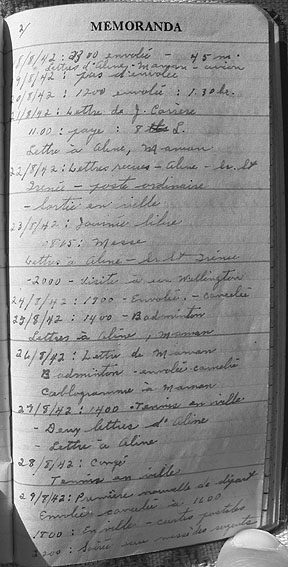 2/
MEMORANDA
18/8/42: 2300 envolée - 45 m.
Lettres d'Aline, Maman - avion
19/8/42: pas d'envolée
20/8/42: 1200 envolée: 1.30 hr.
21/8/42: Lettre de J. Carrère
11.00: paye: 8 L.
Lettre à Aline, Maman
22/8/42: Lettres reçues - Aline - Sr. St
Irénée - poste ordinaire
- Sortie en ville
23/8/42: Journée libre
Messe
Lettres à Aline - Sr. St Irénée
-2000 - visite à un Wellington
24/8/42: 1300 - Envolée - cancelée
25/8/42: 1400 - Badminton
Lettres à Aline, Maman
26/8/42: Lettre de Maman
Badminton - envolée cancelée
Cablogramme à Maman
27/8/42: 1400 - Tennis en ville
- Deux lettres d'Aline
- Lettre à Aline
28/8/42: Congé
Tennis en ville
29/8/42: Première nouvelle de départ
Envolée cancelée à 1600
1800: En ville - cartes postales
2200: Soirée au mess des sergents